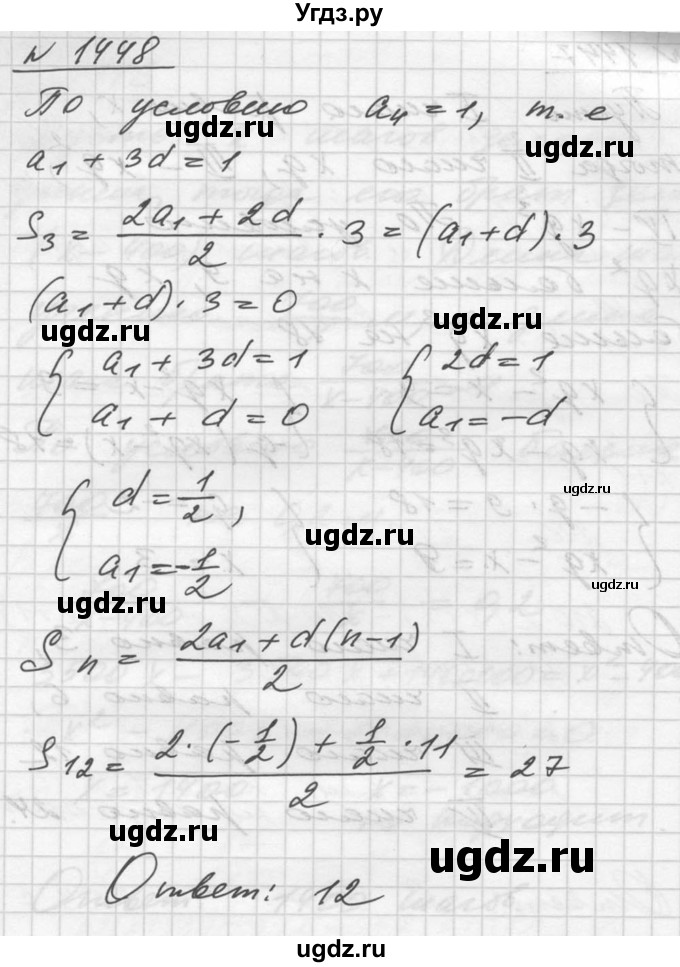 Угдз.ру
N 1448
По условию a₄ = 1, т. е
ugdz.ru ugdz.ru
a₁ + 3d = 1
S₃ = (2a₁ + 2d)/2 · 3 = (a₁ + d) · 3
(a₁ + d) · 3 = 0
ugdz.ru ugdz.ru
{ a₁ + 3d = 1 { 2d = 1
a₁ + d = 0 a₁ = -d
{ d = 1/2,
ugdz.ru
ugdz.ru
a₁ = -1/2
ugdz.ru
ugdz.ru
Sₙ = (2a₁ + d(n-1))/2
S₁₂ = (2 · (-1/2) + 1/2 · 11)/2 = 27
ugdz.ru
ugdz.ru
Ответ: 12
ugdz.ru